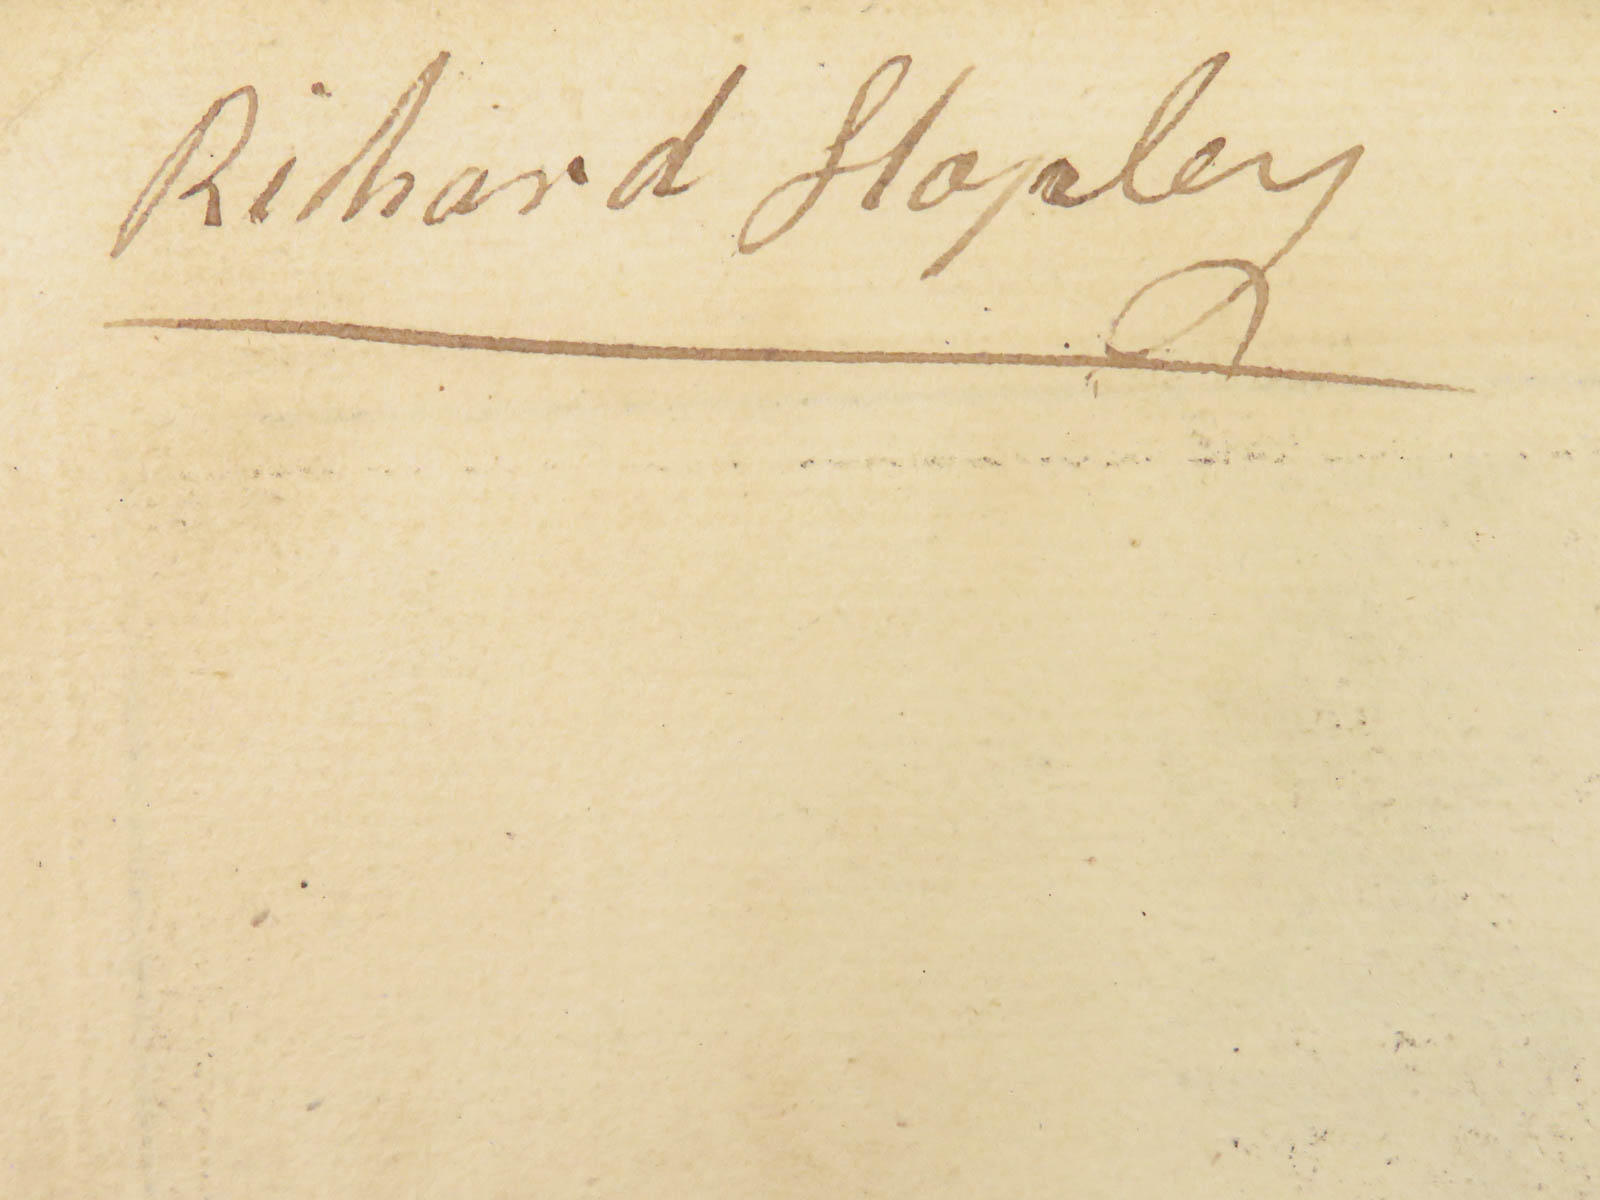 Richard Stapley